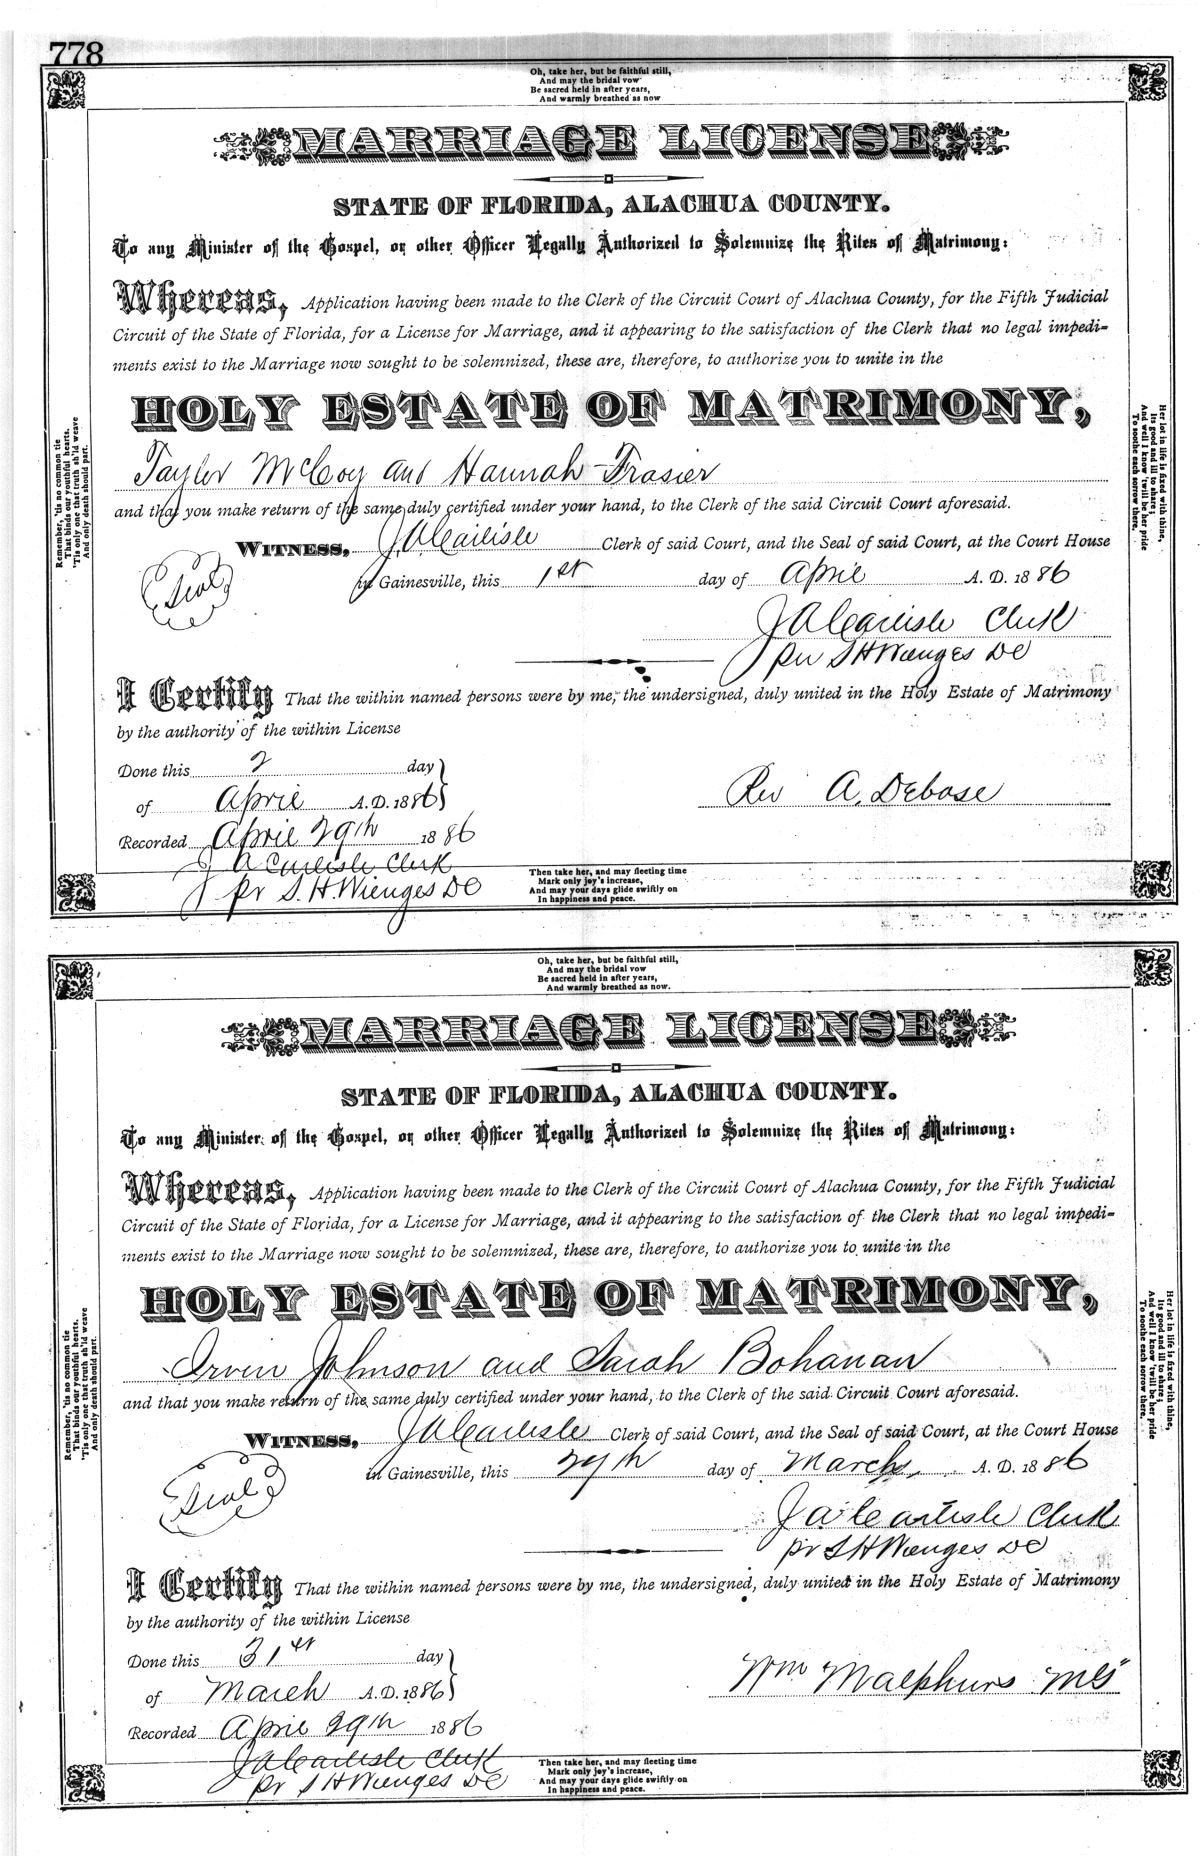 778
Oh, take her, but be faithful still,
And may the bridal vow
Be sacred held in after years,
And warmly breathed as now
MARRIAGE LICENSE
STATE OF FLORIDA, ALACHUA COUNTY.
To any Minister of the Gospel, or other Officer Legally Authorized to Solemnize the Rites of Matrimony:
Whereas, Application having been made to the Clerk of the Circuit Court of Alachua County, for the Fifth Judicial
Circuit of the State of Florida, for a License for Marriage, and it appearing to the satisfaction of the Clerk that no legal impedi-
ments exist to the Marriage now sought to be solemnized, these are, therefore, to authorize you to unite in the
HOLY ESTATE OF MATRIMONY,
Taylor McCoy and Hannah Frasier
and that you make return of the same duly certified under your hand, to the Clerk of the said Circuit Court aforesaid.
WITNESS, J A Carlisle Clerk of said Court, and the Seal of said Court, at the Court House
(Seal) in Gainesville, this 1st day of April A. D. 1886
J A Carlisle Clerk
per S H Wienges DC
I Certify That the within named persons were by me, the undersigned, duly united in the Holy Estate of Matrimony
by the authority of the within License
Done this 2 day
of April A.D. 1886
Rev A. Debose
Recorded April 29th 1886
J A Carlisle Clerk
pr S. H. Wienges DC
Then take her, and may fleeting time
Mark only joy's increase,
And may your days glide swiftly on
In happiness and peace.
Remember, 'tis no common tie
That binds our youthful hearts.
'Tis only one that truth sh'ld weave
And only death should part.
Her lot in life is fixed with thine,
Its good and ill to share;
And well I know 'twill be her pride
To soothe each sorrow there.
Oh, take her, but be faithful still,
And may the bridal vow
Be sacred held in after years,
And warmly breathed as now.
MARRIAGE LICENSE
STATE OF FLORIDA, ALACHUA COUNTY.
To any Minister of the Gospel, or other Officer Legally Authorized to Solemnize the Rites of Matrimony:
Whereas, Application having been made to the Clerk of the Circuit Court of Alachua County, for the Fifth Judicial
Circuit of the State of Florida, for a License for Marriage, and it appearing to the satisfaction of the Clerk that no legal impedi-
ments exist to the Marriage now sought to be solemnized, these are, therefore, to authorize you to unite in the
HOLY ESTATE OF MATRIMONY,
Irvin Johnson and Sarah Bohanan
and that you make return of the same duly certified under your hand, to the Clerk of the said Circuit Court aforesaid.
WITNESS, J A Carlisle Clerk of said Court, and the Seal of said Court, at the Court House
(Seal) in Gainesville, this 29th day of March A. D. 1886
J A Carlisle Clerk
pr S H Wienges DC
I Certify That the within named persons were by me, the undersigned, duly united in the Holy Estate of Matrimony
by the authority of the within License
Done this 31st day
of March A.D. 1886
Wm Malphurs MG
Recorded April 29th 1886
J A Carlisle Clerk
pr S H Wienges DC
Then take her, and may fleeting time
Mark only joy's increase,
And may your days glide swiftly on
In happiness and peace.
Remember, 'tis no common tie
That binds our youthful hearts.
'Tis only one that truth sh'ld weave
And only death should part.
Her lot in life is fixed with thine,
Its good and ill to share;
And well I know 'twill be her pride
To soothe each sorrow there.